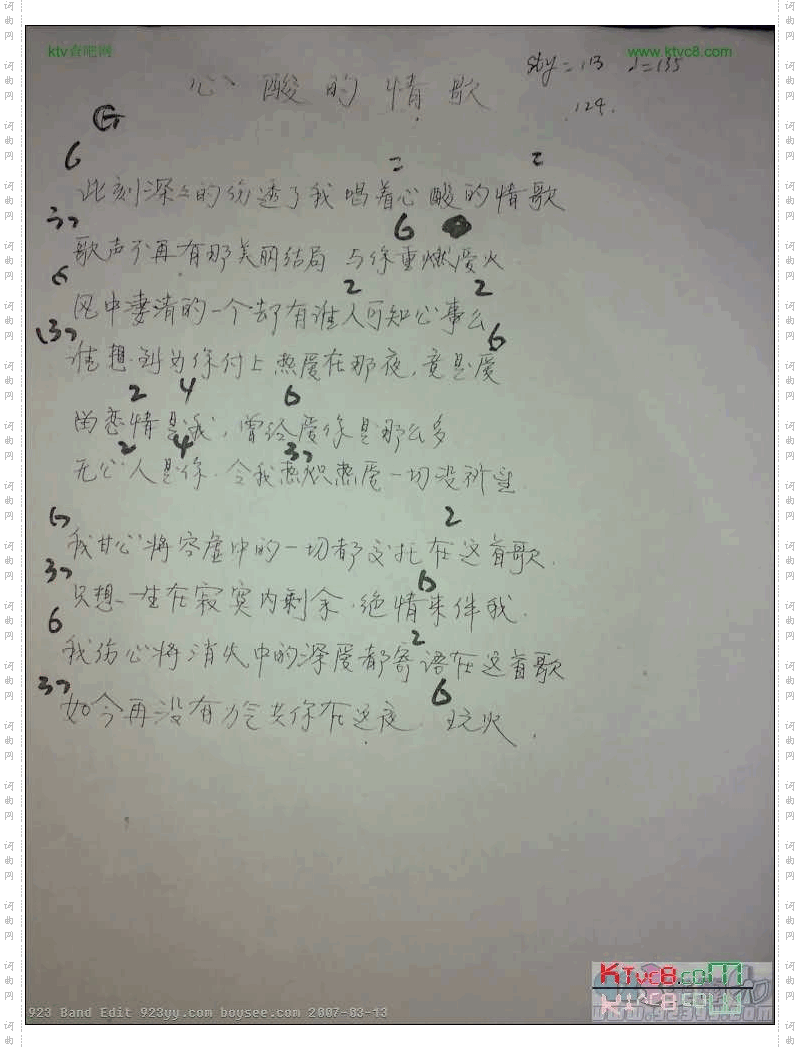 ktv音吧网 www.ktvc8.com
sty=113 ♩=135
心酸的情歌
124.
G
6 2 2
此刻深々的伤透了我唱着心酸的情歌
37 6
歌声不再有那美丽结局 与你重燃爱火
6 2 2
风中凄清的一个却有谁人可知心事么
(37 6
谁想到为你付上热爱在那夜，竟是爱
2 4 6
曲恋情是我，曾给爱你是那么多
2 4 37
无心人是你·令我热炽热爱一切没所望
6 2
我甘心将空虚中的一切都交托在这首歌.
37 6
只想一生在寂寞内剩余·绝情来伴我.
6 2
我伤心将消失中的深爱都寄语在这首歌
37 6
如今再没有力气共你在这夜 玩火.
KTvc8.com
923 Band Edit 923yy.com boysee.com 2007-03-13
词曲网